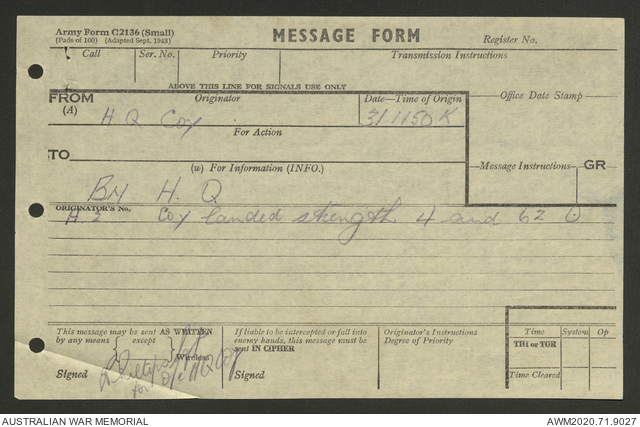 Army Form C2136 (Small)
(Pads of 100) (Adapted Sept. 1943)
MESSAGE FORM
Register No.
Call
Ser. No.
Priority
Transmission Instructions
ABOVE THIS LINE FOR SIGNALS USE ONLY
FROM
(A)
Originator
Date—Time of Origin
Office Date Stamp
H Q Coy
31 1150 K
For Action
TO
(w) For Information (INFO.)
Message Instructions
GR
Bn H. Q
ORIGINATOR'S No.
H 2 Coy landed strength 4 and 62
This message may be sent AS WRITTEN
by any means except
Wireless
Signed
for O/c HQ Coy
If liable to be intercepted or fall into
enemy hands, this message must be
sent IN CIPHER
Signed
Originator's Instructions
Degree of Priority
Time
System
Op
THI or TOR
Time Cleared
AUSTRALIAN WAR MEMORIAL
AWM2020.71.9027